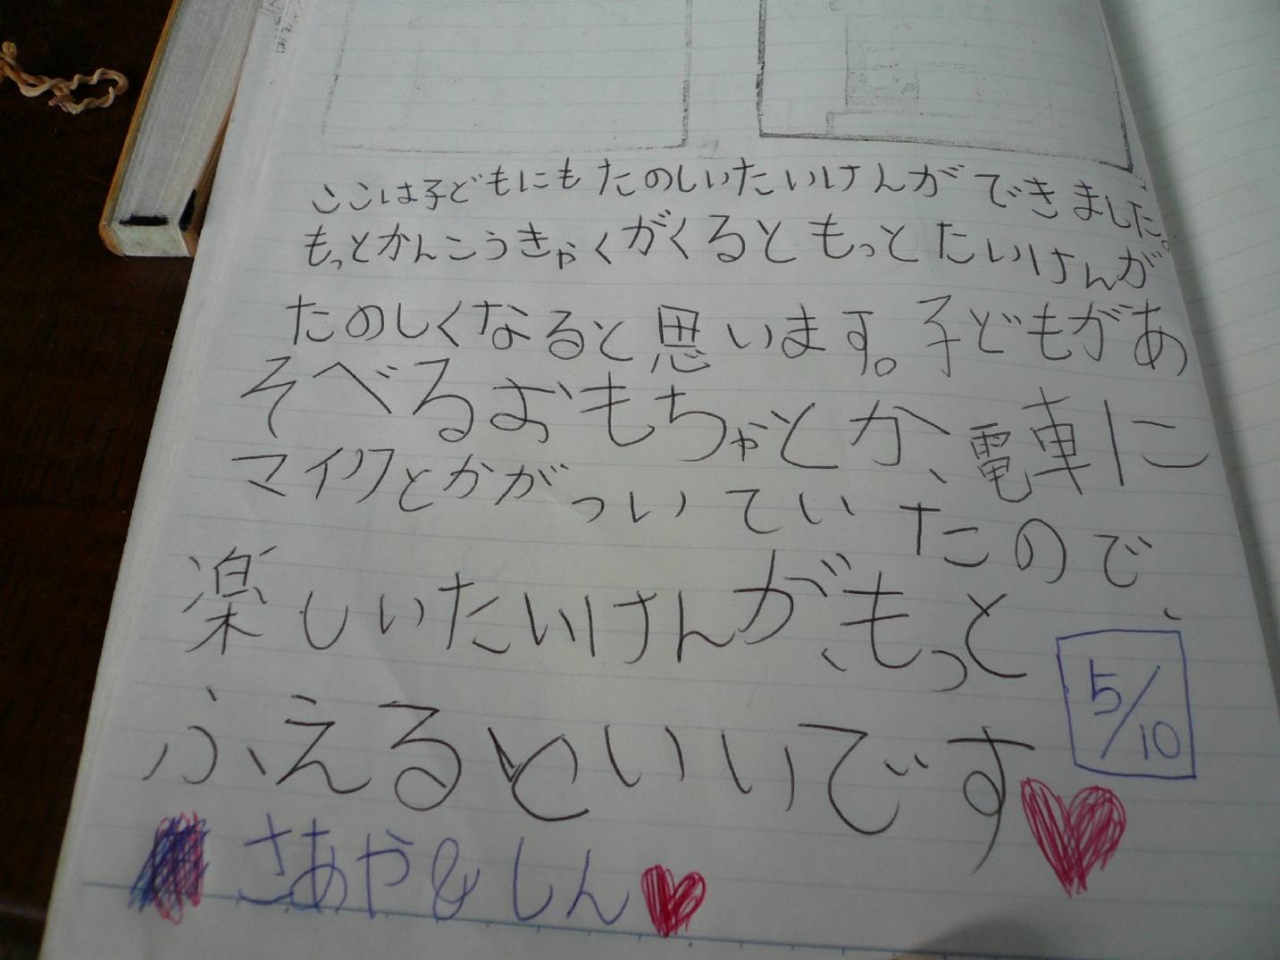 ここは子どもにもたのしいたいけんができました。
もっとかんこうきゃくがくるともっとたいけんが
たのしくなると思います。子どもがあ
そべるおもちゃとか、電車に
マイクとかがついていたので、
楽しいたいけんが、もっと
ふえるといいです
5/10
さあや&しん